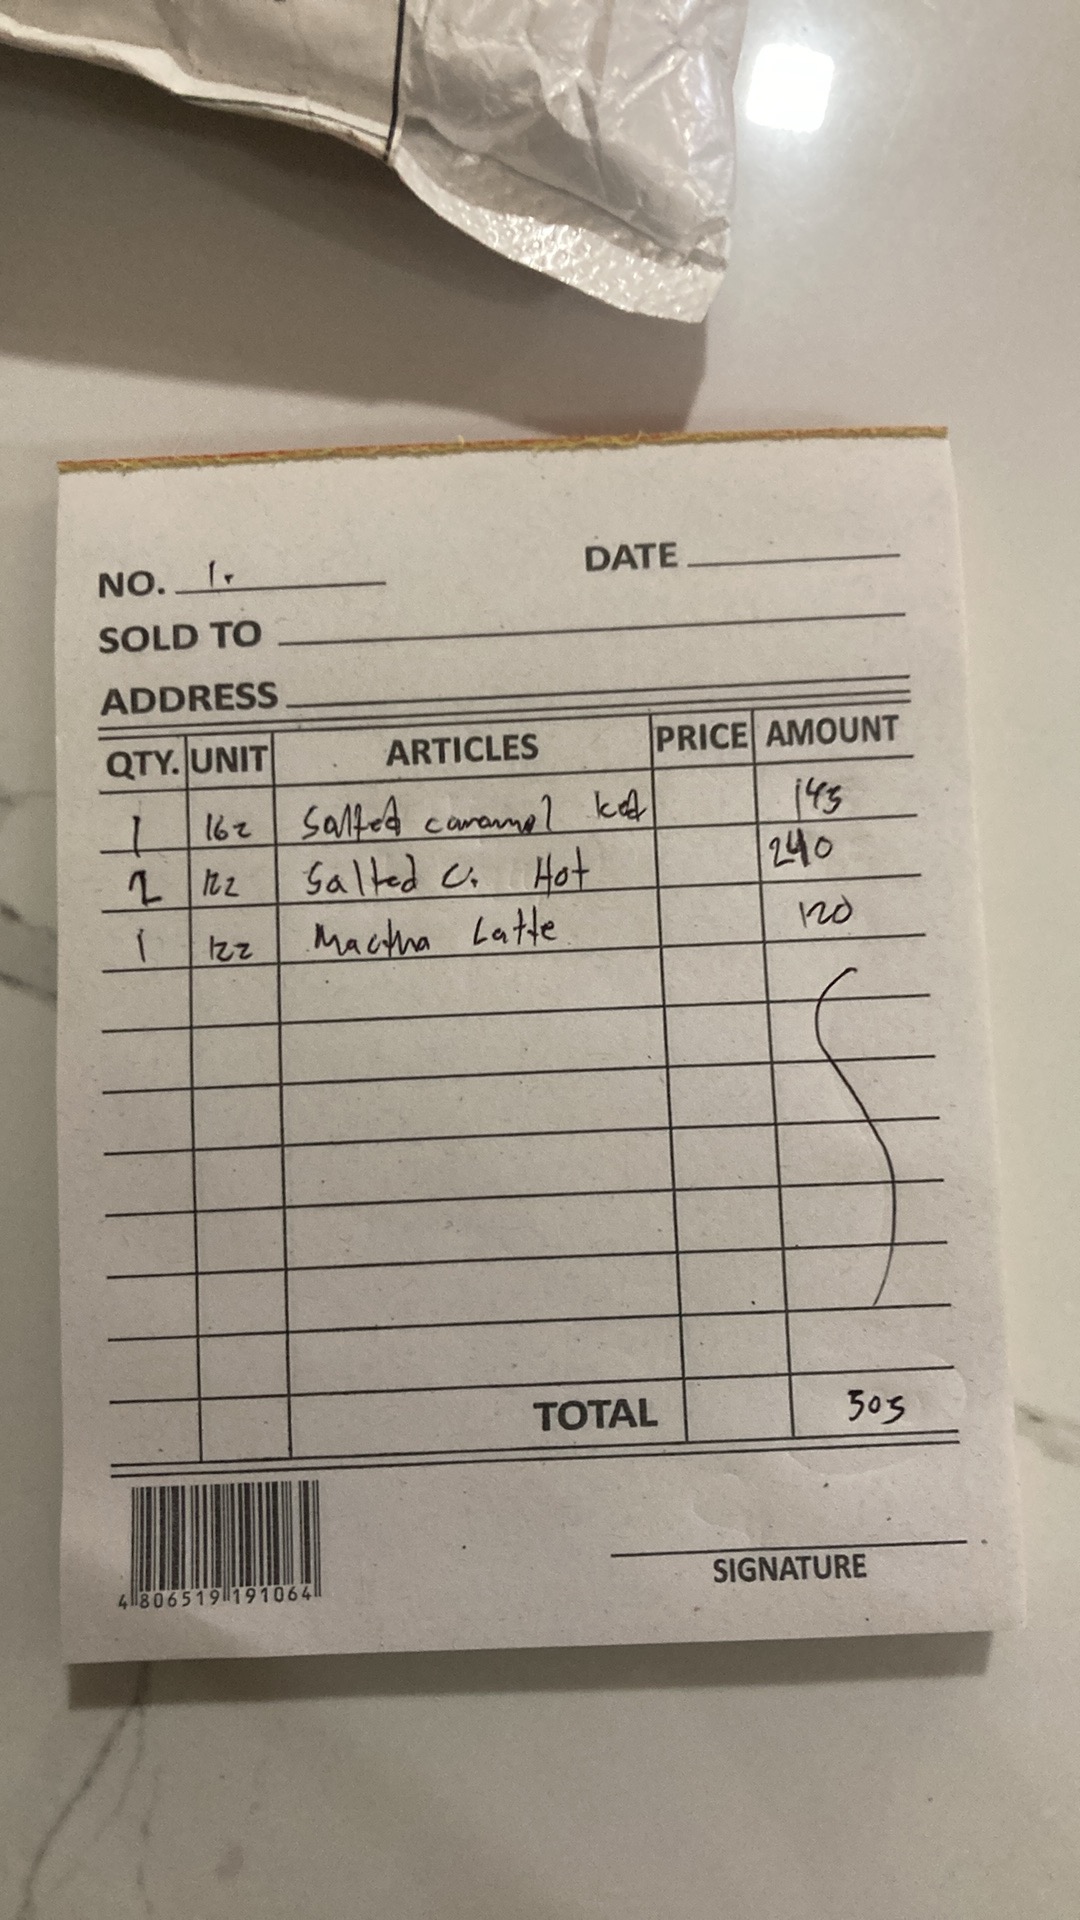 NO. 1. DATE
SOLD TO
ADDRESS
QTY. UNIT ARTICLES PRICE AMOUNT
1 16z Salted caramel 145
2 12z Salted C. Hot 240
1 12z Mactha Latte 120
TOTAL 505
4 806519 191064
SIGNATURE